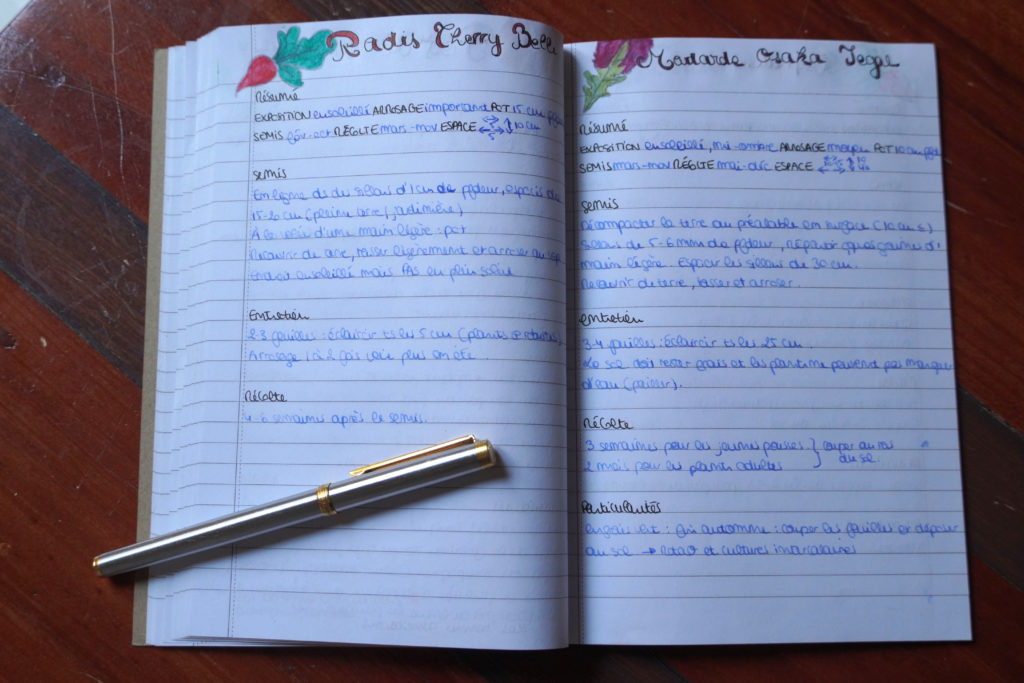 Radis Cherry Belle
Résumé
EXPOSITION ensoleillé ARROSAGE important POT 15 cm pfdeur
SEMIS fév-oct RÉCOLTE mars-nov ESPACE 5 10 cm
Semis
En ligne ds des sillons d'1 cm de pfdeur, espacés de
15-20 cm (pleine terre/jardinière)
À la volée d'une main légère : pot
Recouvrir de terre, tasser légèrement et arroser
Endroit ensoleillé mais PAS en plein soleil
Entretien
2-3 feuilles : éclaircir ts les 5 cm (plants + robustes)
Arrosage 1 à 2 fois voire plus en été.
Récolte
4-6 semaines après le semis.
Moutarde Osaka
Résumé
EXPOSITION ensoleillé, mi-ombre ARROSAGE moyen POT 10 cm pfdr
SEMIS mars-nov RÉCOLTE mai-déc ESPACE
Semis
Décompacter la terre au préalable en surface (10 cm)
Sillons de 5-6 mm de pfdeur, répartir qques graines d'1
main légère. Espacer les sillons de 30 cm.
Recouvrir de terre, tasser et arroser.
Entretien
3-4 feuilles : éclaircir ts les 25 cm.
Le sol doit rester frais et les plants ne peuvent pas manquer
d'eau (pailler).
Récolte
3 semaines pour les jeunes pousses } couper au ras
2 mois pour les plants adultes du sol.
Particularités
engrais vert : fin automne : couper les feuilles et déposer
au sol → rotat° et cultures intercalaires